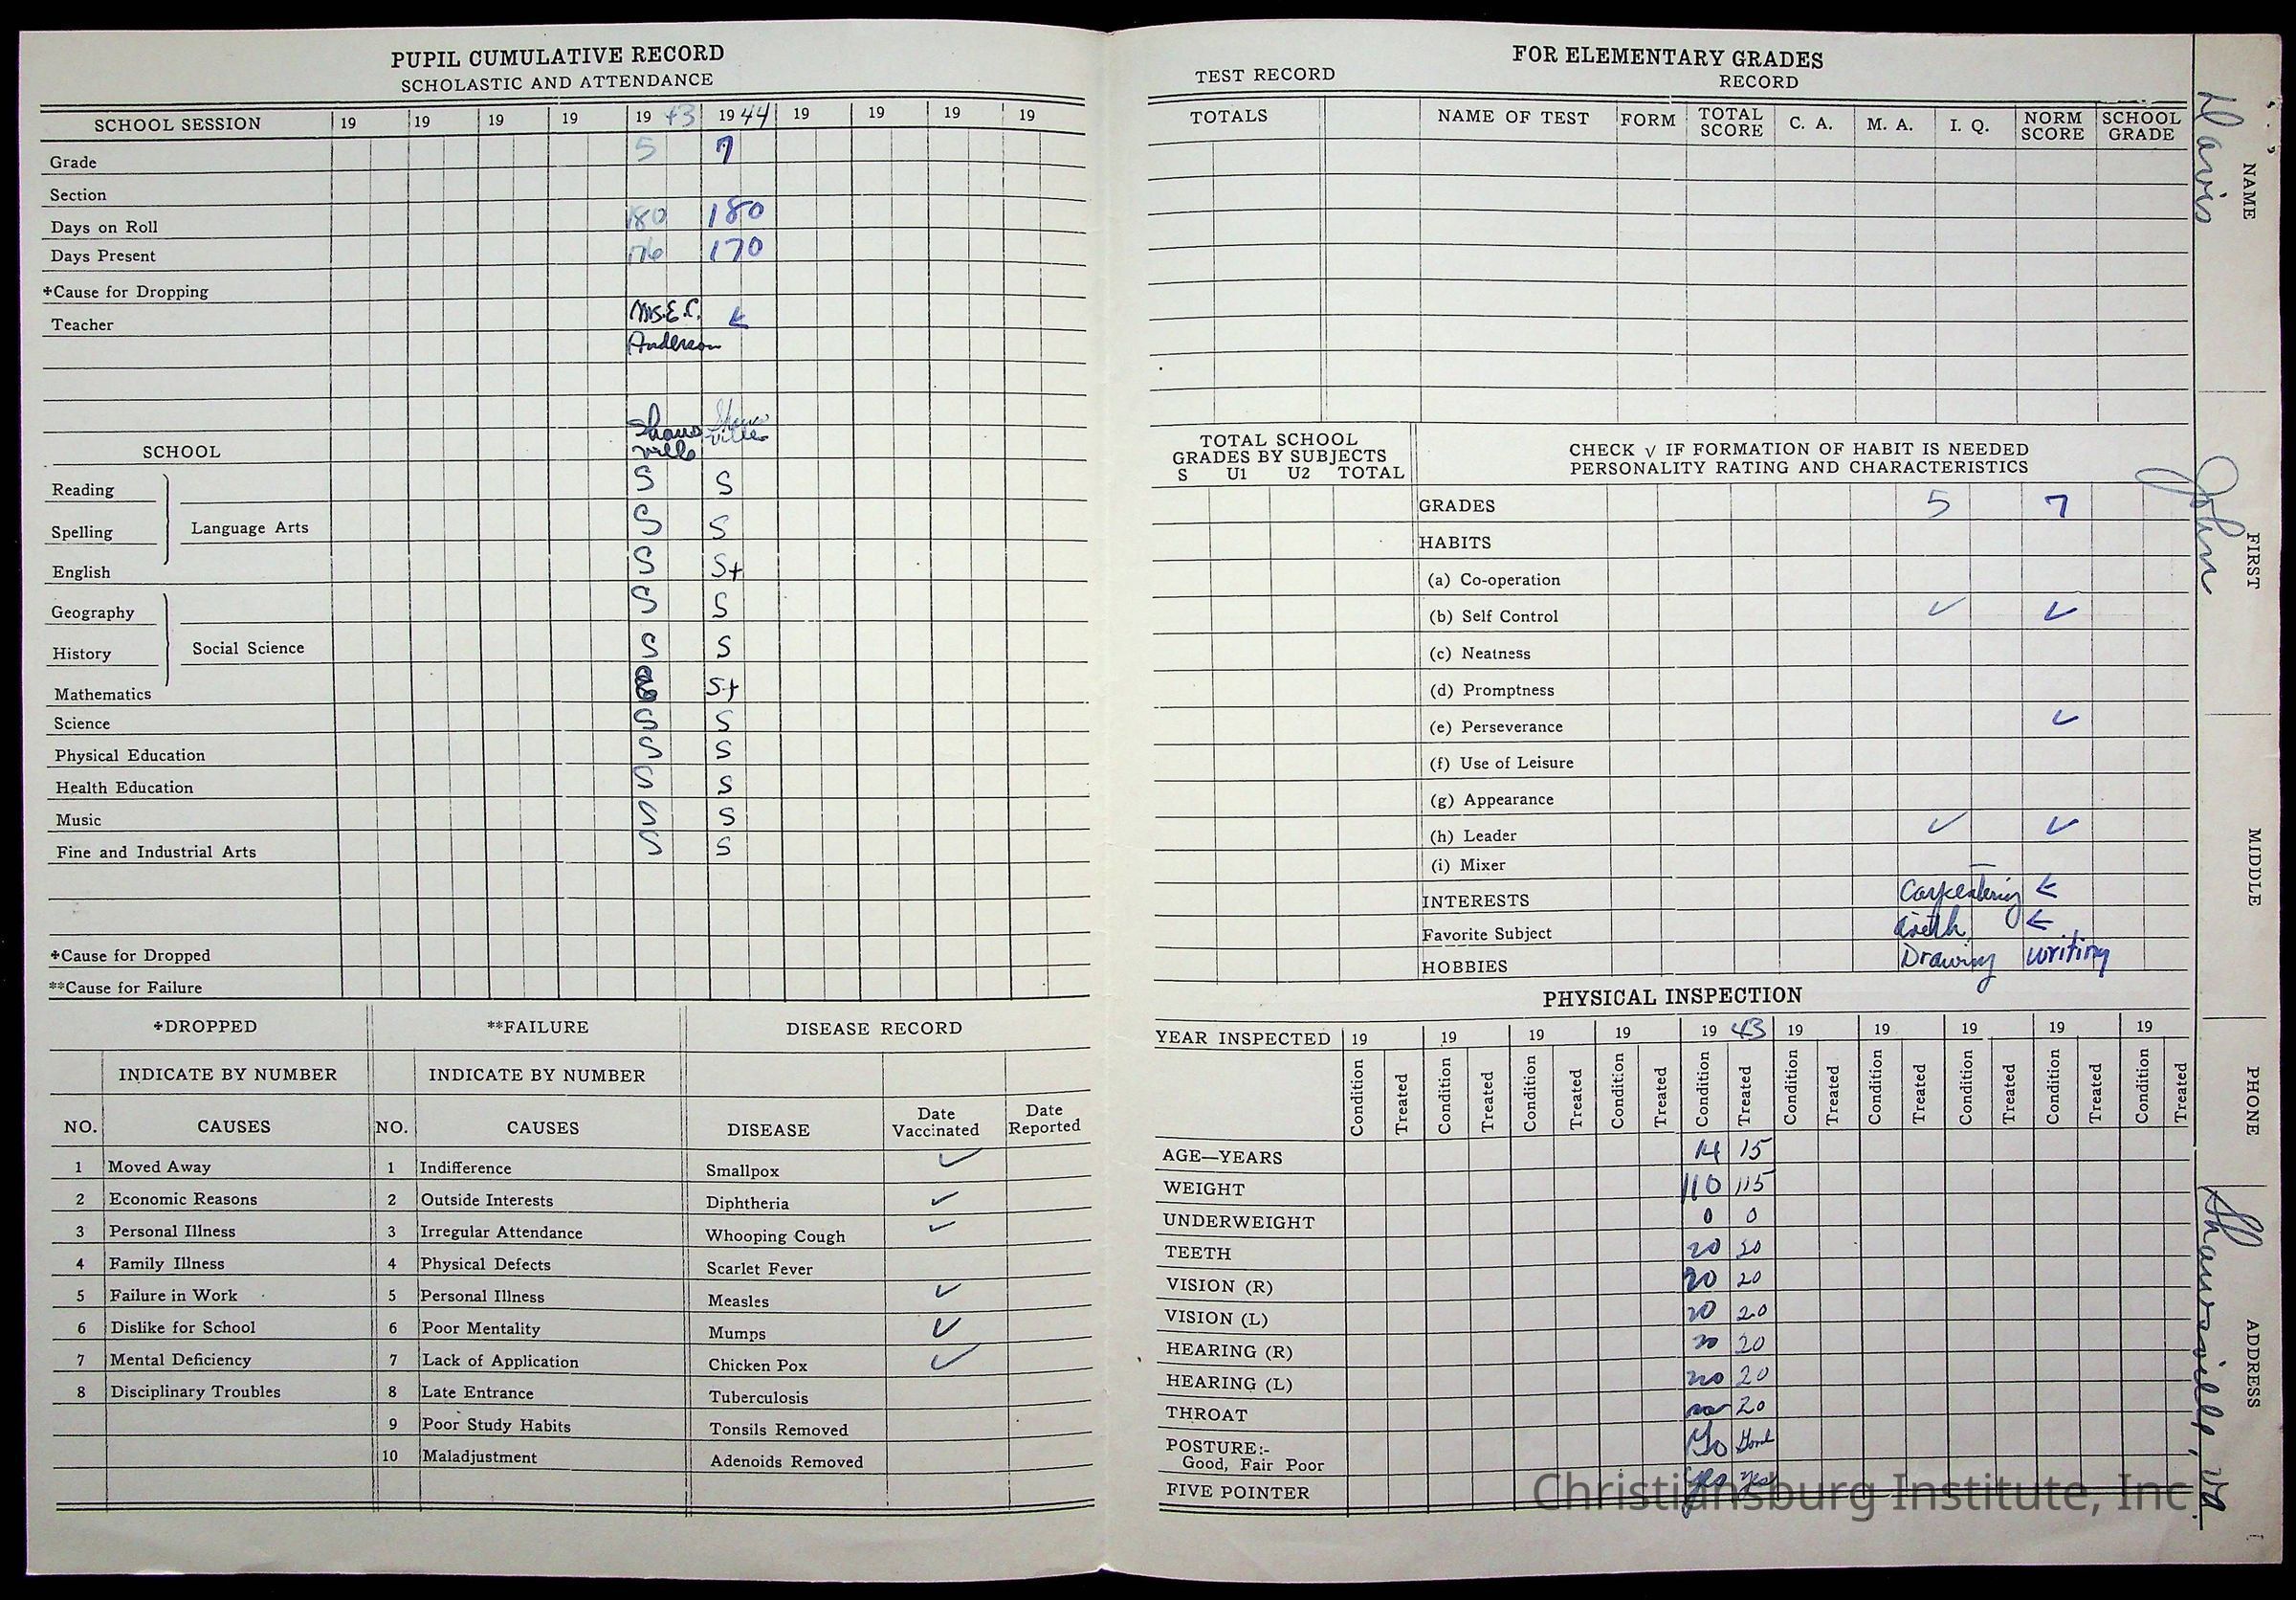 PUPIL CUMULATIVE RECORD
SCHOLASTIC AND ATTENDANCE
SCHOOL SESSION 19 19 19 19 19 43 19 44 19 19 19 19
Grade 5 7
Section
Days on Roll 180 180
Days Present 176 170
*Cause for Dropping
Teacher Mrs. E. C. ←
Anderson
SCHOOL Shawsville Shawsville
Reading S S
Spelling Language Arts S S
English S S+
Geography S S
History Social Science S S
Mathematics S+
Science S S
Physical Education S S
Health Education S S
Music S S
Fine and Industrial Arts S S
*Cause for Dropped
**Cause for Failure
*DROPPED **FAILURE DISEASE RECORD
INDICATE BY NUMBER INDICATE BY NUMBER
NO. CAUSES NO. CAUSES DISEASE Date Vaccinated Date Reported
1 Moved Away 1 Indifference Smallpox ✓
2 Economic Reasons 2 Outside Interests Diphtheria ✓
3 Personal Illness 3 Irregular Attendance Whooping Cough ✓
4 Family Illness 4 Physical Defects Scarlet Fever
5 Failure in Work 5 Personal Illness Measles ✓
6 Dislike for School 6 Poor Mentality Mumps ✓
7 Mental Deficiency 7 Lack of Application Chicken Pox ✓
8 Disciplinary Troubles 8 Late Entrance Tuberculosis
9 Poor Study Habits Tonsils Removed
10 Maladjustment Adenoids Removed
FOR ELEMENTARY GRADES
TEST RECORD RECORD
TOTALS NAME OF TEST FORM TOTAL SCORE C. A. M. A. I. Q. NORM SCORE SCHOOL GRADE
TOTAL SCHOOL
GRADES BY SUBJECTS
S U1 U2 TOTAL
CHECK √ IF FORMATION OF HABIT IS NEEDED
PERSONALITY RATING AND CHARACTERISTICS
GRADES 5 7
HABITS
(a) Co-operation
(b) Self Control ✓ ✓
(c) Neatness
(d) Promptness
(e) Perseverance ✓
(f) Use of Leisure
(g) Appearance
(h) Leader ✓ ✓
(i) Mixer
INTERESTS Carpentering ←
Favorite Subject Arith ←
HOBBIES Drawing writing
PHYSICAL INSPECTION
YEAR INSPECTED 19 19 19 19 19 43 19 19 19 19 19
Condition Treated Condition Treated Condition Treated Condition Treated Condition Treated Condition Treated Condition Treated Condition Treated Condition Treated Condition Treated
AGE—YEARS 14 15
WEIGHT 110 115
UNDERWEIGHT 0 0
TEETH 20 20
VISION (R) 20 20
VISION (L) 20 20
HEARING (R) 20 20
HEARING (L) 20 20
THROAT 20
POSTURE:-
Good, Fair Poor Good
FIVE POINTER yes yes
NAME Davis
FIRST John
MIDDLE
PHONE
ADDRESS Shawsville, Va.
Christiansburg Institute, Inc